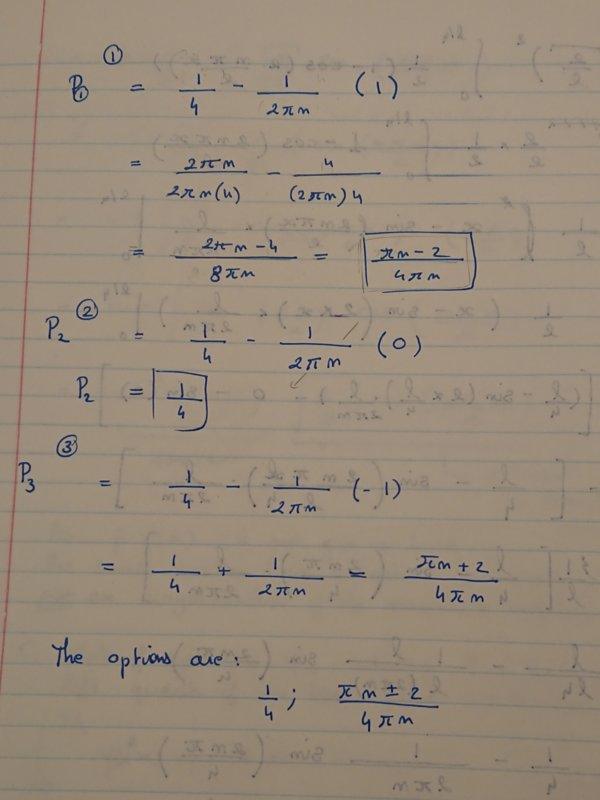 ①
P₁ = 1/4 - 1/(2πn) (1)
= 2πn/(2πn(4)) - 4/((2πn)4)
= (2πn - 4)/(8πn) = (πn - 2)/(4πn)
②
P₂ = 1/4 - 1/(2πn) (0)
P₂ = 1/4
③
P₃ = 1/4 - 1/(2πn) (-1)
= 1/4 + 1/(2πn) = (πn + 2)/(4πn)
The options are:
1/4 ; (πn ± 2)/(4πn)